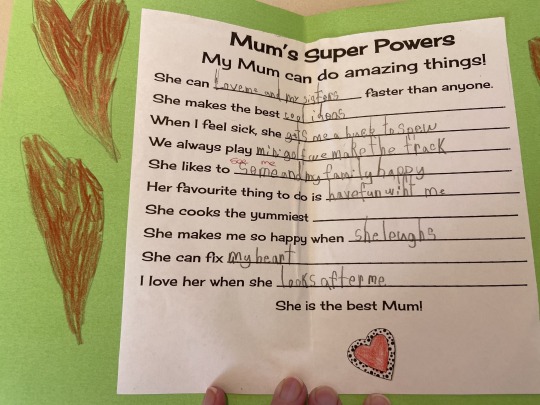 Mum's Super Powers
My Mum can do amazing things!
She can Love me and my sisters faster than anyone.
She makes the best cool ideas
When I feel sick, she gets me a buck to spew
We always play mini golf we make the track
see me
She likes to seme and my family happy
Her favourite thing to do is have fun wiht me
She cooks the yummiest
She makes me so happy when she leughs
She can fix my heart
I love her when she looks after me
She is the best Mum!